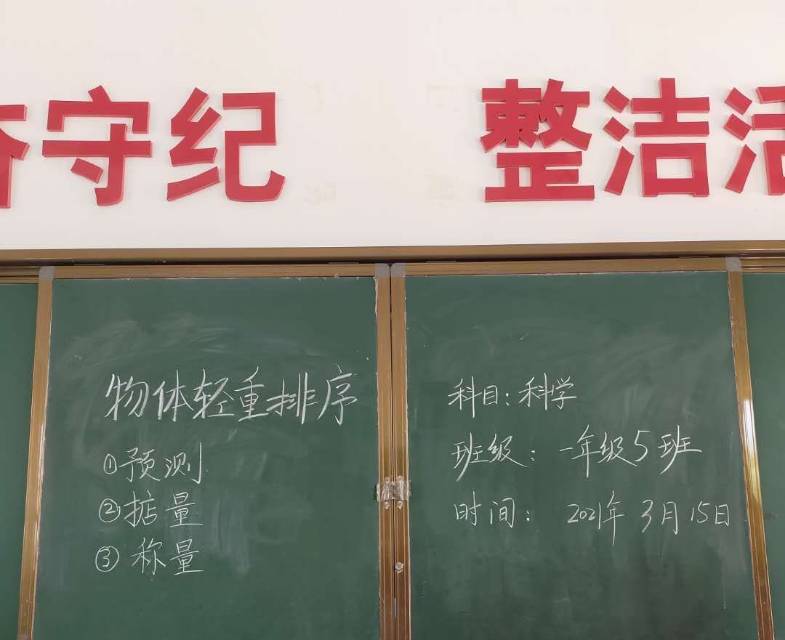 守纪 整洁
物体轻重排序
①预测
②掂量
③称量
科目：科学
班级：一年级5班
时间：2021年3月15日